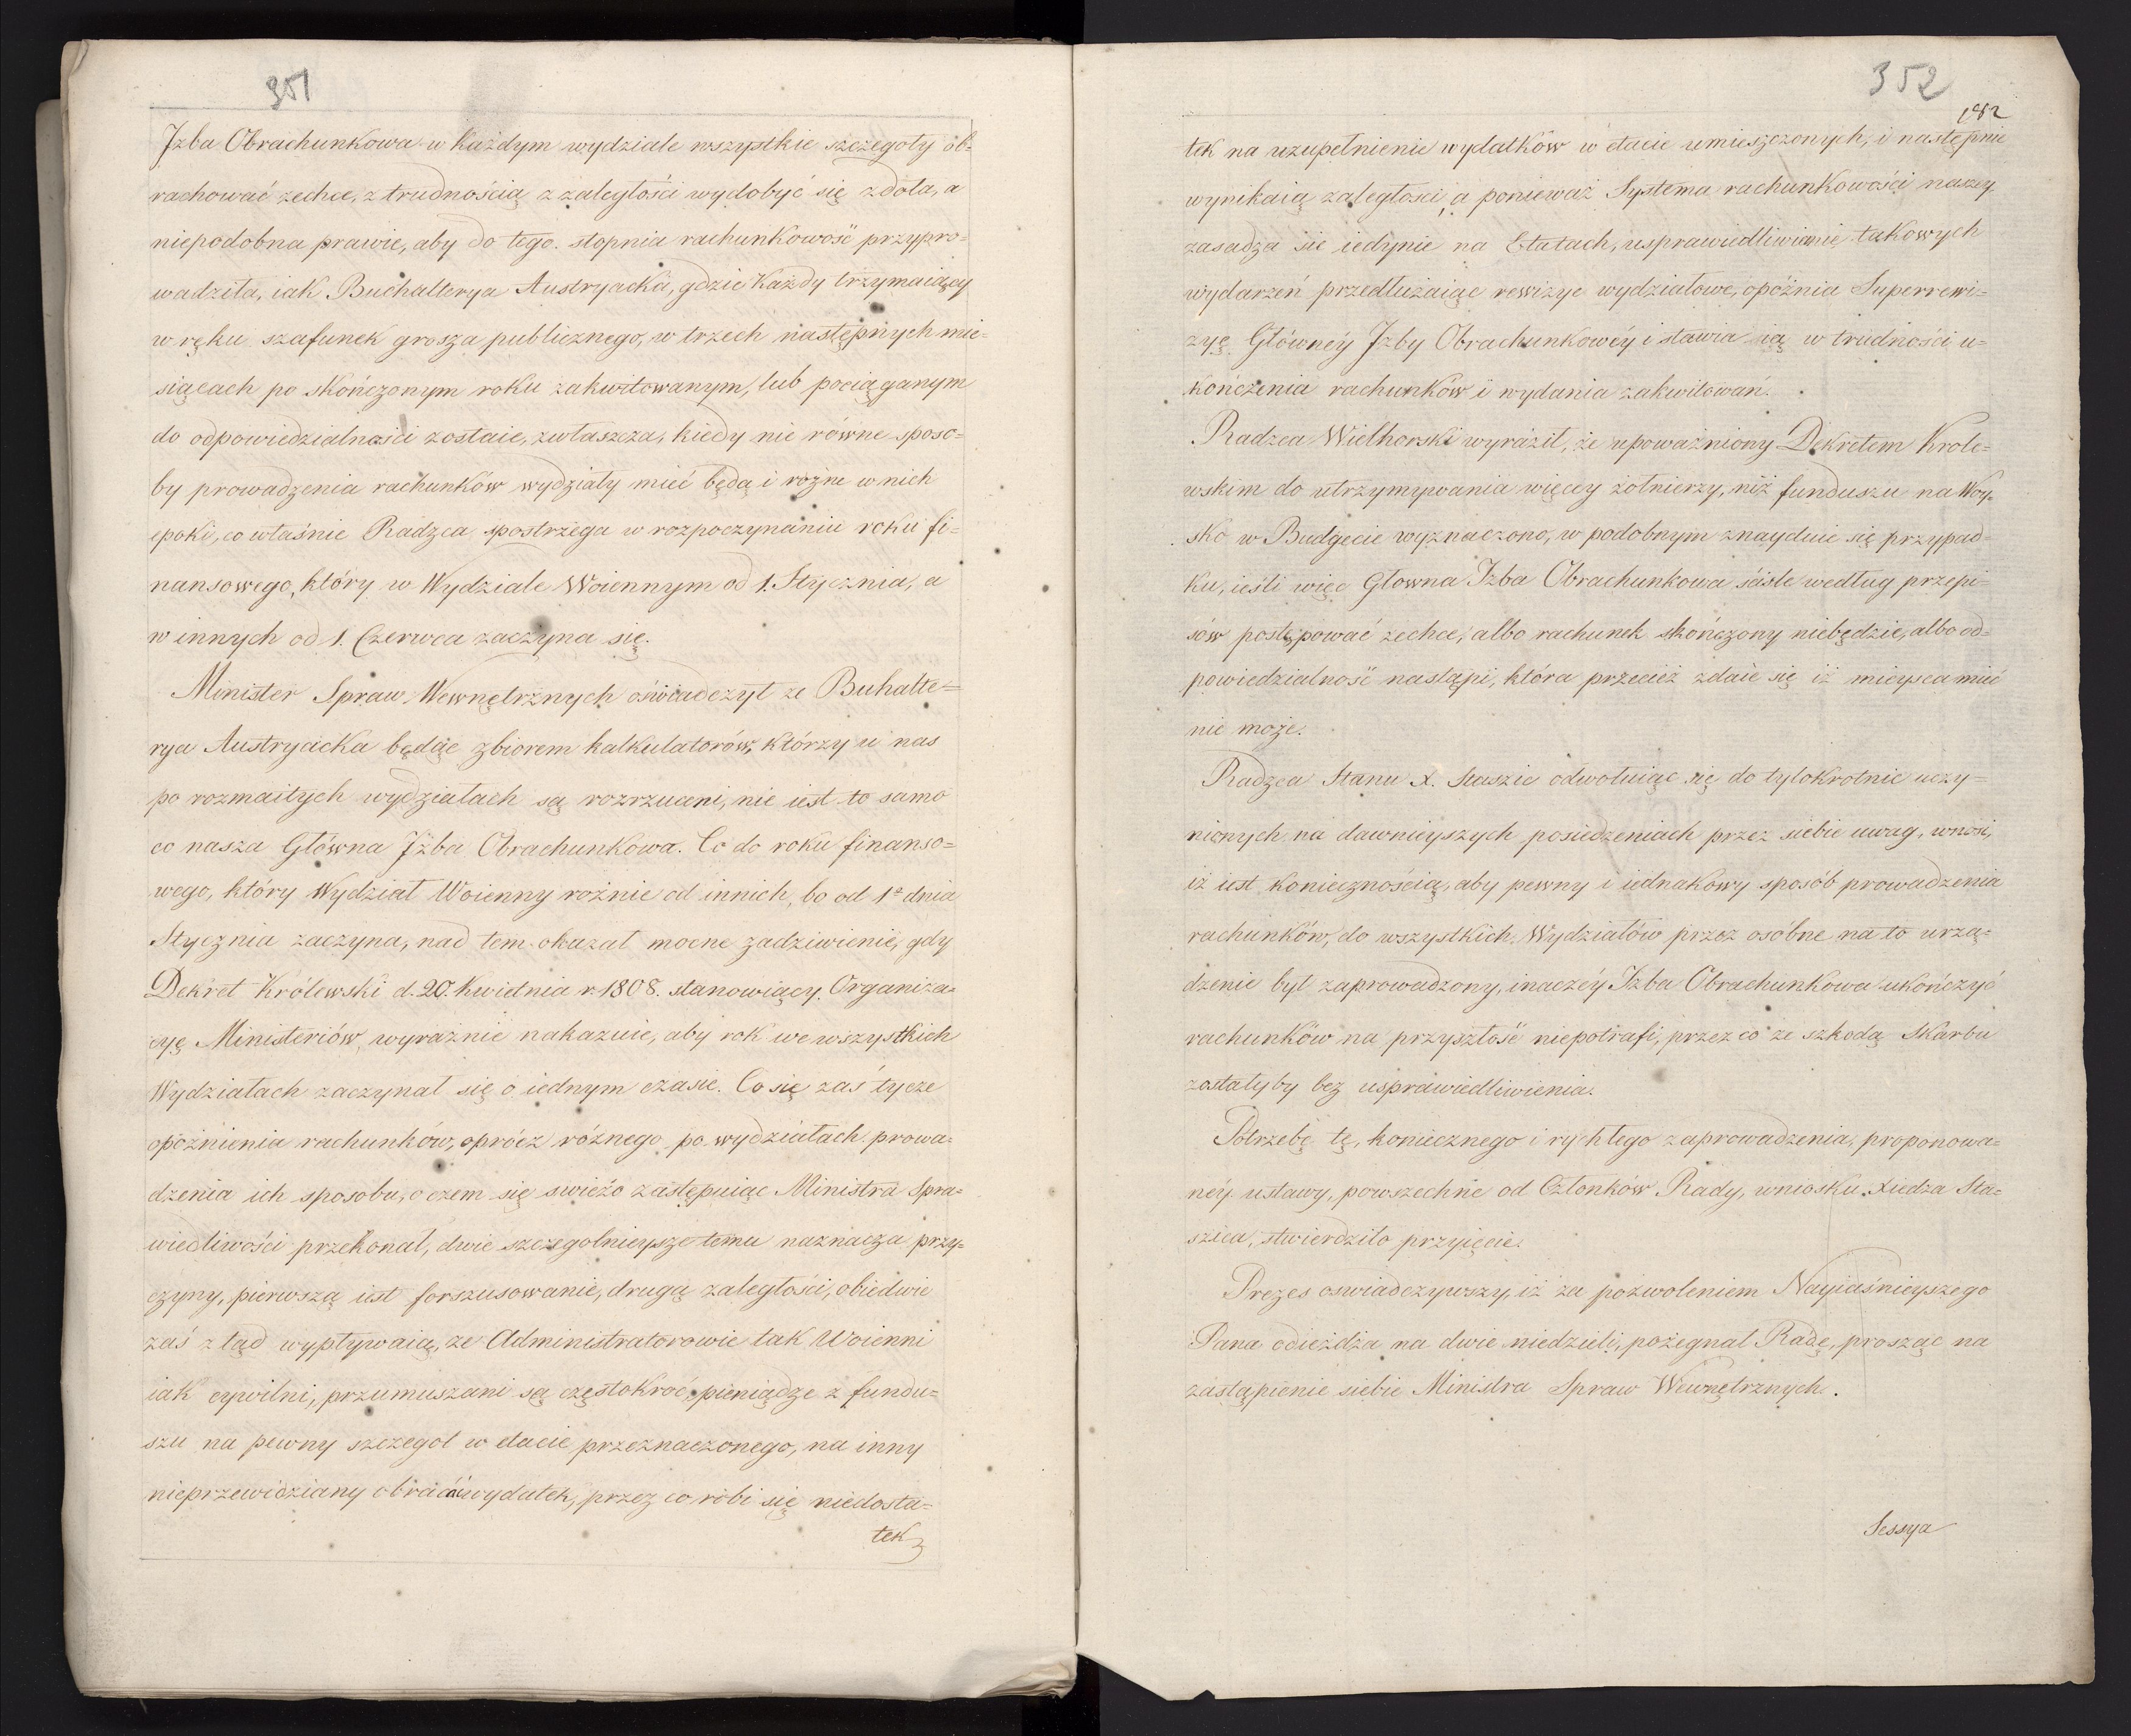 351
Jzba Obrachunkowa w każdym wydziale wszystkie szczegoły ob=
rachować zechce, z trudnością z zaległości wydobyć się zdoła, a
niepodobna prawie, aby do tego stopnia rachunkowość przypro=
wadziła, iak Buchalterya Austryacka, gdzie każdy trzymaiący
w ręku szafunek grosza publicznego, w trzech następnych mie=
siącach po skończonym roku zakwitowanym, lub pociąganym
do odpowiedzialności zostaie, zwłaszcza, kiedy nie równe sposo=
by prowadzenia rachunków wydziały mieć będą i rożne w nich
epoki, co właśnie Radzca spostrzega w rozpoczynaniu roku fi=
nansowego, który w Wydziale Woiennym od 1. Stycznia, a
w innych od 1. Czerwca zaczyna się.
Minister Spraw Wewnętrznych oświadczył ze Buhalte=
rya Austryacka będąc zbiorem kalkulatorów, którzy u nas
po rozmaitych wydziałach są rozrzuceni, nie iest to samo
co nasza Główna Jzba Obrachunkowa. Co do roku finanso=
wego, który Wydział Woienny rożnie od innich, bo od 1º dnia
Stycznia zaczyna, nad tem okazał mocne zadziwienie, gdy
Dekret Królewski d. 20. Kwietnia r. 1808. stanowiący Organiza=
cyę Ministeriów, wyraźnie nakazuie, aby rok we wszystkich
Wydziałach zaczynał się o iednym czasie. Co się zaś tycze
opoźnienia rachunków, oprócz różnego po wydziałach prowa=
dzenia ich sposobu, o czem się swieżo zastępuiąc Ministra Spra=
wiedliwości przekonał, dwie szczegolnieysze temu naznacza przy=
czyny, pierwszą iest forszusowanie, drugą zaległości, obiedwie
zaś z tąd wypływaią, ze Administratorowie tak Woienni
iak cywilni, przumuszani są częstokroć, pieniądze z fundu=
szu na pewny szczegoł w etacie przeznaczonego, na inny
nieprzewidziany obracać wydatek, przez co robi się niedosta=
tek
352
182
tek na uzupełnienie wydatków w etacie umieszczonych, i następnie
wynikaią zaległosci, a ponieważ Systema rachunkowości naszey
zasadza się iedynie na Etatach, usprawiedliwianie takowych
wydarzeń przedłużaiąc rewizye wydziałowe, opóźnia Superrewi=
zyę Główney Jzby Obrachunkowéy i stawia ią w trudności u=
kończenia rachunków i wydania zakwitowań.
Radzca Wielhorski wyraził, że upoważniony Dekretem Krole=
wskim do utrzymywania więcey żołnierzy, niż funduszu na Woy=
sko w Budgecie wyznaczono, w podobnym znayduie się przypad=
ku, ieśli więc Głowna Izba Obrachunkowa ściśle według przepi=
sów postępować zechce, albo rachunek skończony niebędzie, albo od=
powiedzialność nastąpi, która przecież zdaie się iż mieysca mieć
nie może.
Radzca Stanu X. Staszic odwołuiąc się do tylokrotnie uczy=
nionych na dawnieyszych posiedzeniach przez siebie uwag, wnosi,
iż iest koniecznością, aby pewny i iednakowy sposób prowadzenia
rachunków, do wszystkich Wydziałów przez osóbne na to urzą=
dzenie był zaprowadzony, inaczéy Jzba Obrachunkowa ukończyć
rachunków na przyszłość niepotrafi, przez co ze szkodą Skarbu
zostałyby bez usprawiedliwienia.
Potrzebę tę, koniecznego i rychłego zaprowadzenia, proponowa=
néy ustawy, powszechne od Członków Rady, wniosku Xiedza Sta=
szica, stwierdziło przyięcie.
Prezes oswiadczywszy, iż za pozwoleniem Nayiaśnieyszego
Pana odieżdża na dwie niedzieli, pożegnał Radę, prosząc na
zastąpienie siebie Ministra Spraw Wewnętrznych.
Sessya